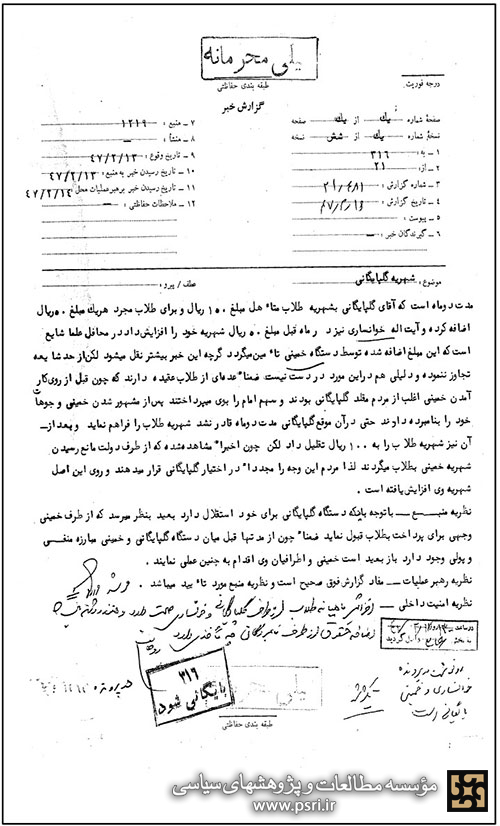 خیلی محرمانه
طبقه بندی حفاظتی
درجه فوریت :
گزارش خبر
صفحهٔ شماره یک از یک صفحه
نسخهٔ شماره یک از شش نسخه
۱ ـ به : ۳۱۶
۲ ـ از : ۲۱
۳ ـ شماره گزارش :
۴ ـ تاریخ گزارش :
۵ ـ پیوست :
۶ ـ گیرندگان خبر ـ
۷ ـ منبع : ۱۲۱۹
۸ ـ منشأ : ــ
۹ ـ تاریخ وقوع : ۴۷/۲/۱۳
۱۰ ـ تاریخ رسیدن خبر به منبع : ۴۷/۲/۱۳
۱۱ ـ تاریخ رسیدن خبر برهبر عملیات محل ۴۷/۲/۱۴
۱۲ ـ ملاحظات حفاظتی : ــ
موضوع : شهریه گلپایگانی
عطف / پیرو :
مدت دو ماه است که آقای گلپایگانی بشهریه طلاب متاٴهل مبلغ ۱۰۰ ریال و برای طلاب مجرد هریک مبلغ ۵۰ ریال
اضافه کرده و آیت اله خوانساری نیز در ماه قبل مبلغ ۵۰ ریال شهریه خود را افزایش داد در محافل علما شایع
است که این مبلغ اضافه شده توسط دستگاه خمینی تاٴمین میگردد گرچه این خبر بیشتر نقل میشود لکن از حد شایعه
تجاوز ننموده و دلیلی هم در این مورد در دست نیست ضمناً عده‌ای از طلاب عقیده دارند که چون قبل از روی کار
آمدن خمینی اغلب از مردم مقلد گلپایگانی بودند و سهم امام را بوی میپرداختند پس از مشهور شدن خمینی وجوهات
خود را بنامبرده دادند حتی در آن موقع گلپایگانی مدت دو ماه قادر نشد شهریه طلاب را فراهم نماید و بعد از ـ
آن نیز شهریه طلاب را به ۱۰۰ ریال تقلیل داد لکن چون اخیراً مشاهده شده که از طرف دولت مانع رسیدن
شهریه خمینی بطلاب میگردند لذا مردم این وجه را مجدداً در اختیار گلپایگانی قرار میدهند و روی این اصل
شهریه وی افزایش یافته است .
نظریه منبع ـ با توجه باینکه دستگاه گلپایگانی برای خود استقلال دارد بعید بنظر میرسد که از طرف خمینی
وجهی برای پرداخت بطلاب قبول نماید ضمناً چون از مدتها قبل میان دستگاه گلپایگانی و خمینی مبارزه منفی
و پولی وجود دارد باز بعید است خمینی و اطرافیان وی اقدام به چنین عملی نمایند .
نظریه رهبر عملیات ـ مفاد گزارش فوق صحیح است و نظریه منبع مورد تاٴیید میباشد .
نظریه امنیت داخلی ـ افزایش ماهیانه طلاب از طرف گلپایگانی و خوانساری صحت دارد
۳۱۹
بایگانی شود
خیلی محرمانه
طبقه بندی حفاظتی
خوانساری و خمینی
بایگانی است
مؤسسه مطالعات و پژوهشهای سیاسی
www.psri.ir